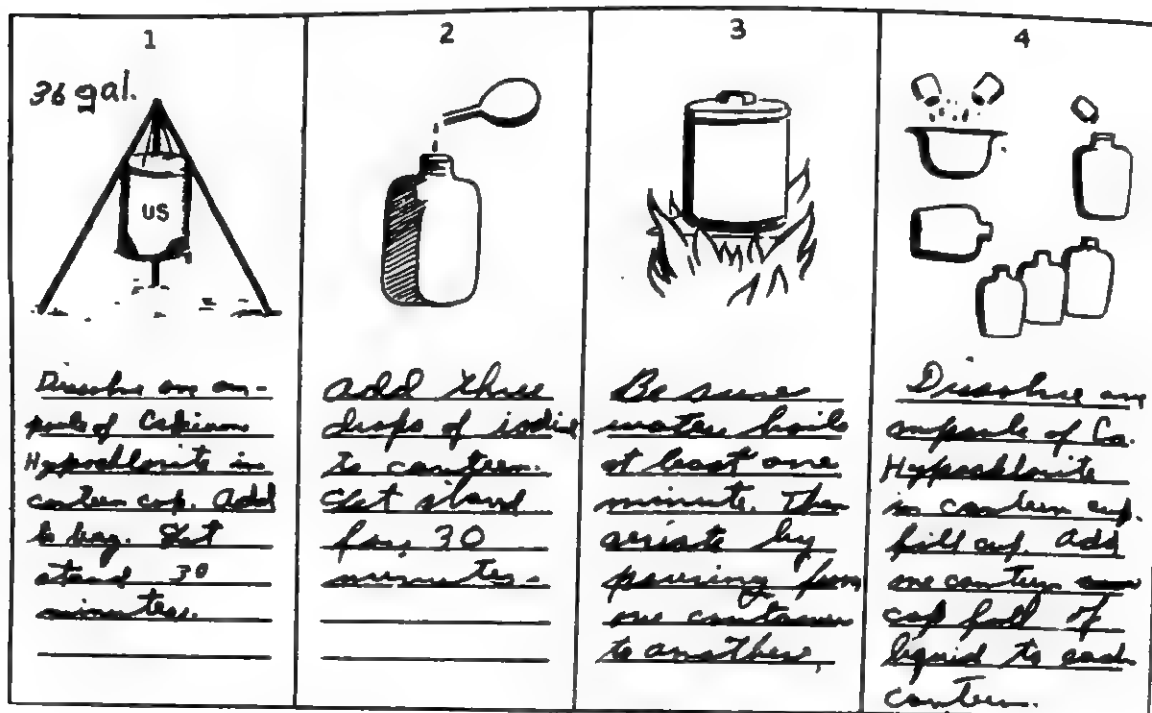 1
36 gal.
US
Dissolve one am-
poule of Calcium
Hypochlorite in
canteen cup. Add
to bag. Let
stand 30
minutes.
2
Add three
drops of iodine
to canteen.
Let stand
for 30
minutes.
3
Be sure
water boils
at least one
minute. Then
aeriate by
pouring from
one container
to another.
4
Dissolve one
ampoule of Ca.
Hypochlorite
in canteen cup.
fill cup. Add
one canteen
cap full of
liquid to each
canteen.